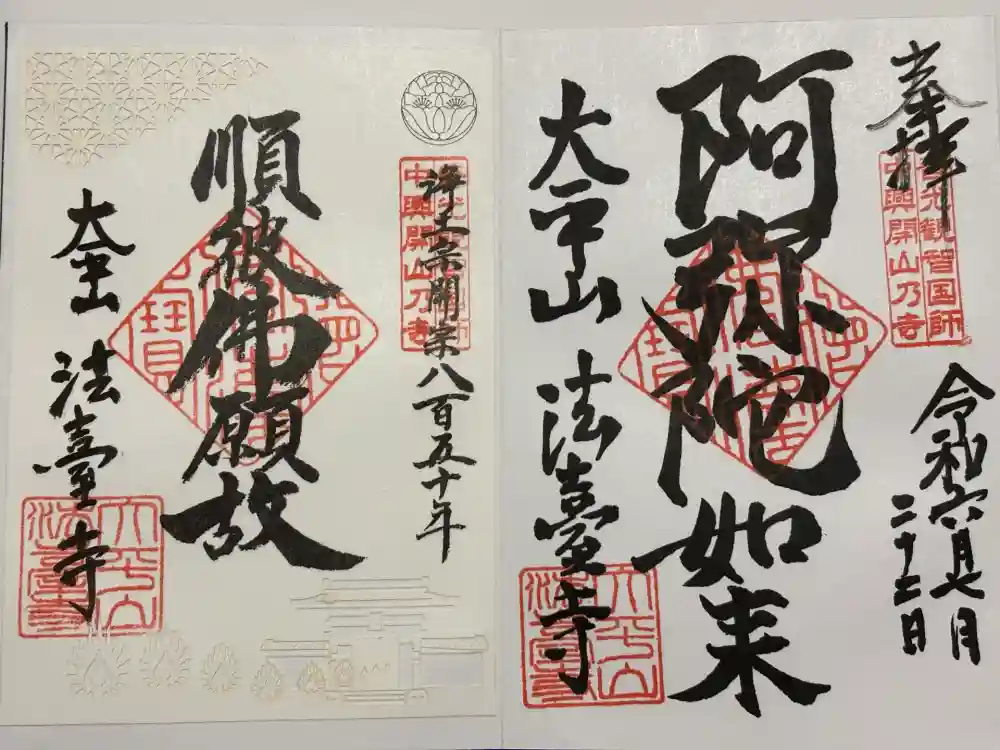 奉拝
普光観智国師
中興開山乃寺
令和六年七月
阿弥陀如来
大平山 法臺寺
浄土宗開宗八百五十年
中興開山乃寺
順彼佛願故
大平山 法臺寺